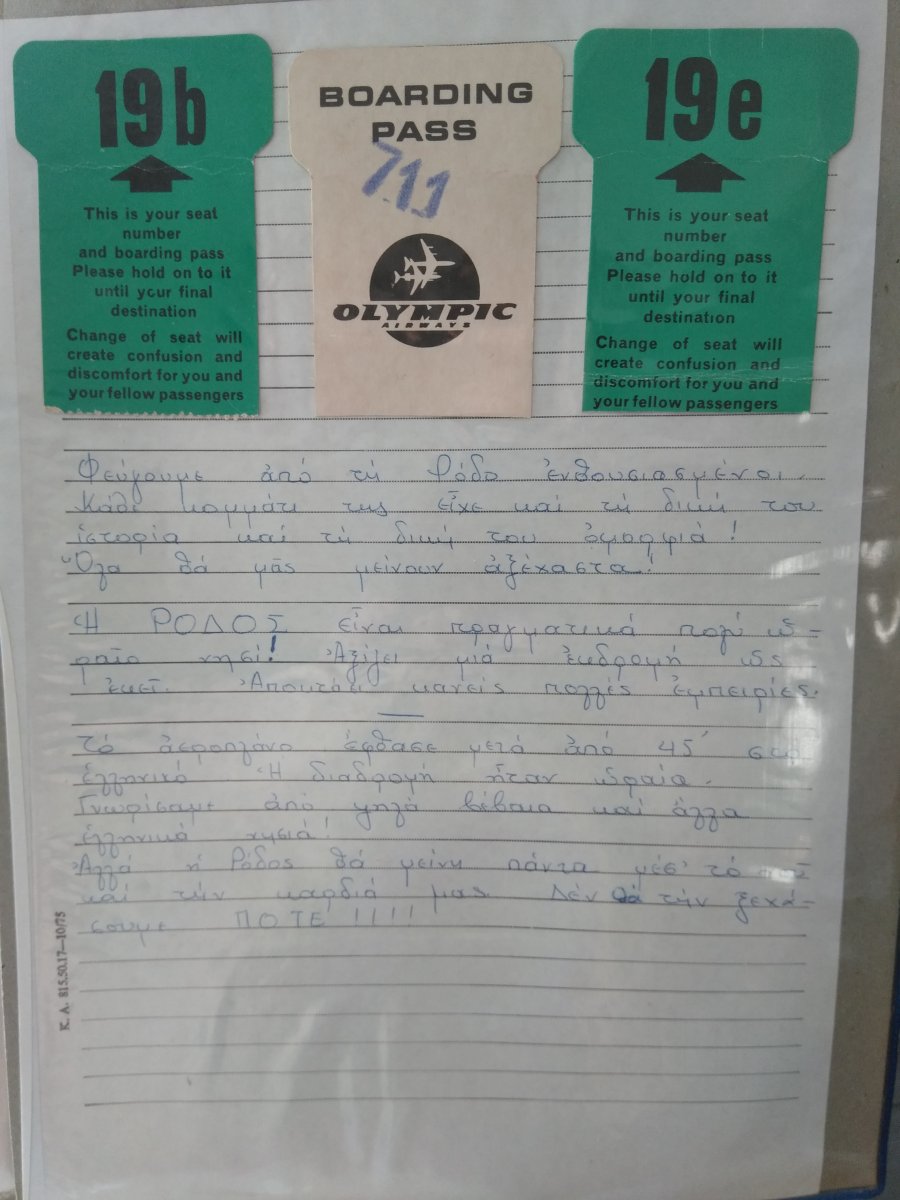 19b
This is your seat
number
and boarding pass
Please hold on to it
until your final
destination
Change of seat will
create confusion and
discomfort for you and
your fellow passengers
BOARDING
PASS
711
OLYMPIC
AIRWAYS
19e
This is your seat
number
and boarding pass
Please hold on to it
until your final
destination
Change of seat will
create confusion and
discomfort for you and
your fellow passengers
Φεύγουμε ἀπό τή Ρόδο ἐνθουσιασμένοι.
Κάθε κομμάτι της εἶχε καί τή δική του
ἱστορία καί τή δική του ὀμορφιά!
Ὅλα θά μᾶς μείνουν ἀξέχαστα!
Ἡ ΡΟΔΟΣ εἶναι πραγματικά πολύ ὡ-
ραῖο νησί! Ἀξίζει μιά ἐκδρομή ὡς
ἐκεῖ. Ἀποκτάει κανείς πολλές ἐμπειρίες.
Τό ἀεροπλάνο ἔφθασε μετά ἀπό 45΄ στό
ἑλληνικό. Ἡ διαδρομή ἦταν ὡραία.
Γνωρίσαμε ἀπό ψηλά βέβαια καί ἄλλα
ἑλληνικά νησιά!
Ἀλλά ἡ Ρόδος θά μείνη πάντα μέσ' τό νοῦ
καί τήν καρδιά μας. Δέν θά τήν ξεχά-
σουμε ΠΟΤΕ!!!!
Κ. Α. 815.50.17—10/75